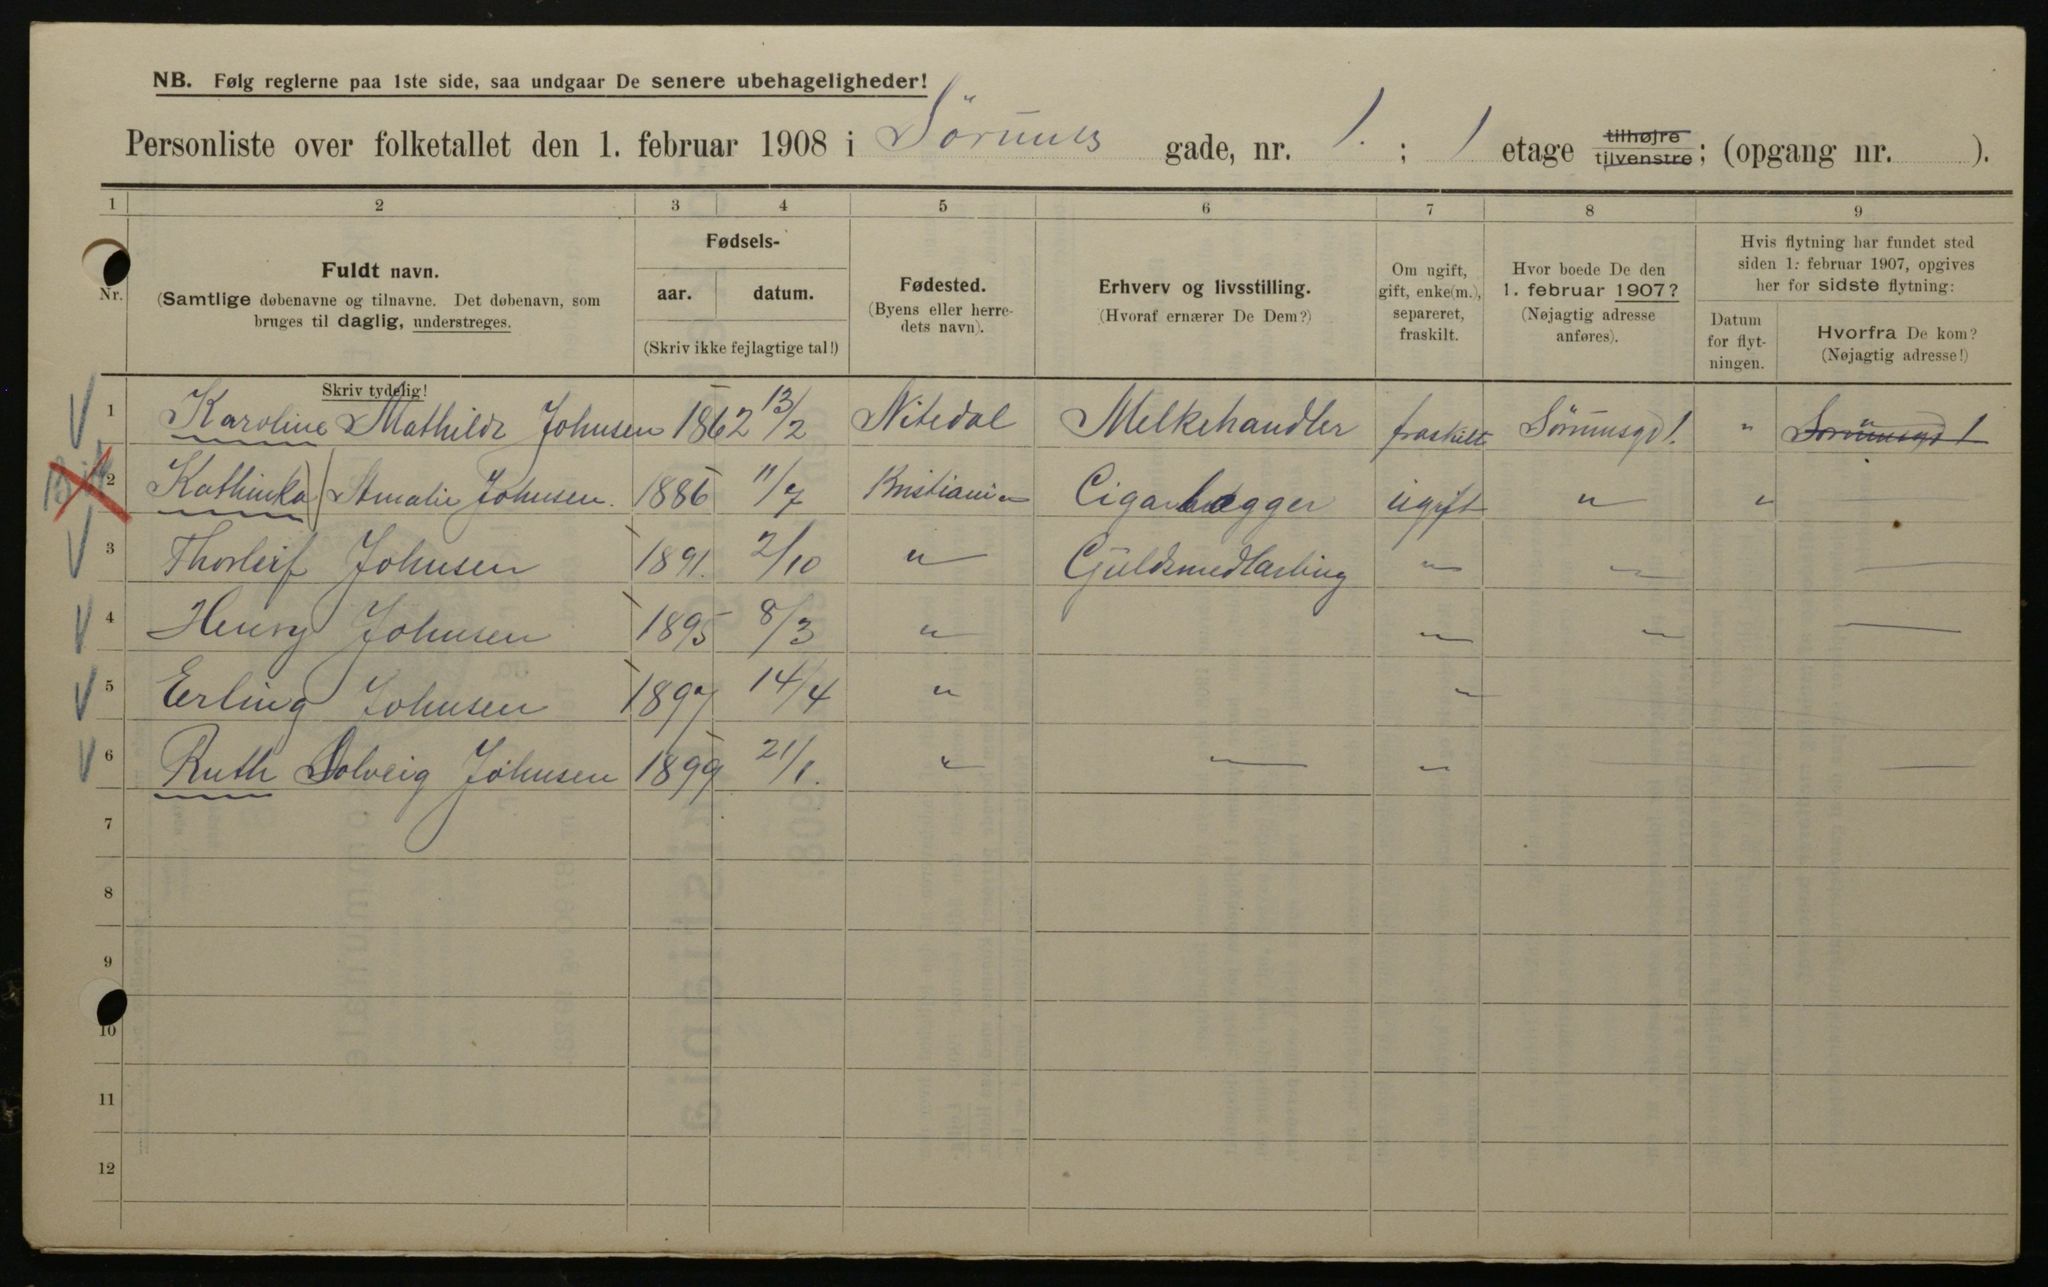 NB. Følg reglerne paa 1ste side, saa undgaar De senere ubehageligheder!
Personliste over folketallet den 1. februar 1908 i Sörums gade, nr. 1. ; 1 etage tilhøjre tilvenstre ; (opgang nr. ).
1 2 3 4 5 6 7 8 9
Nr.
Fuldt navn.
(Samtlige døbenavne og tilnavne. Det døbenavn, som
bruges til daglig, understreges.
Skriv tydelig!
Fødsels-
aar. datum.
(Skriv ikke fejlagtige tal!)
Fødested.
(Byens eller herre-
dets navn).
Erhverv og livsstilling.
(Hvoraf ernærer De Dem?)
Om ugift,
gift, enke(m.),
separeret,
fraskilt.
Hvor boede De den
1. februar 1907?
(Nøjagtig adresse
anføres).
Hvis flytning har fundet sted
siden 1. februar 1907, opgives
her for sidste flytning:
Datum
for flyt-
ningen.
Hvorfra De kom?
(Nøjagtig adresse!)
1 Karoline Mathilde Johnsen 1862 13/2 Nitedal Melkehandler fraskilt Sörumsgd 1. " Sörumsgd 1
2 Kathinka Amalie Johnsen. 1886 11/7 Kristiania Cigarlægger ugift " "
3 Thorleif Johnsen 1891. 2/10 " Guldsmedlærling " "
4 Henry Johnsen 1895 8/3 " " "
5 Erling Johnsen 1897 14/4 " "
6 Ruth Solveig Johnsen 1899 21/1. " "
7
8
9
10
11
12